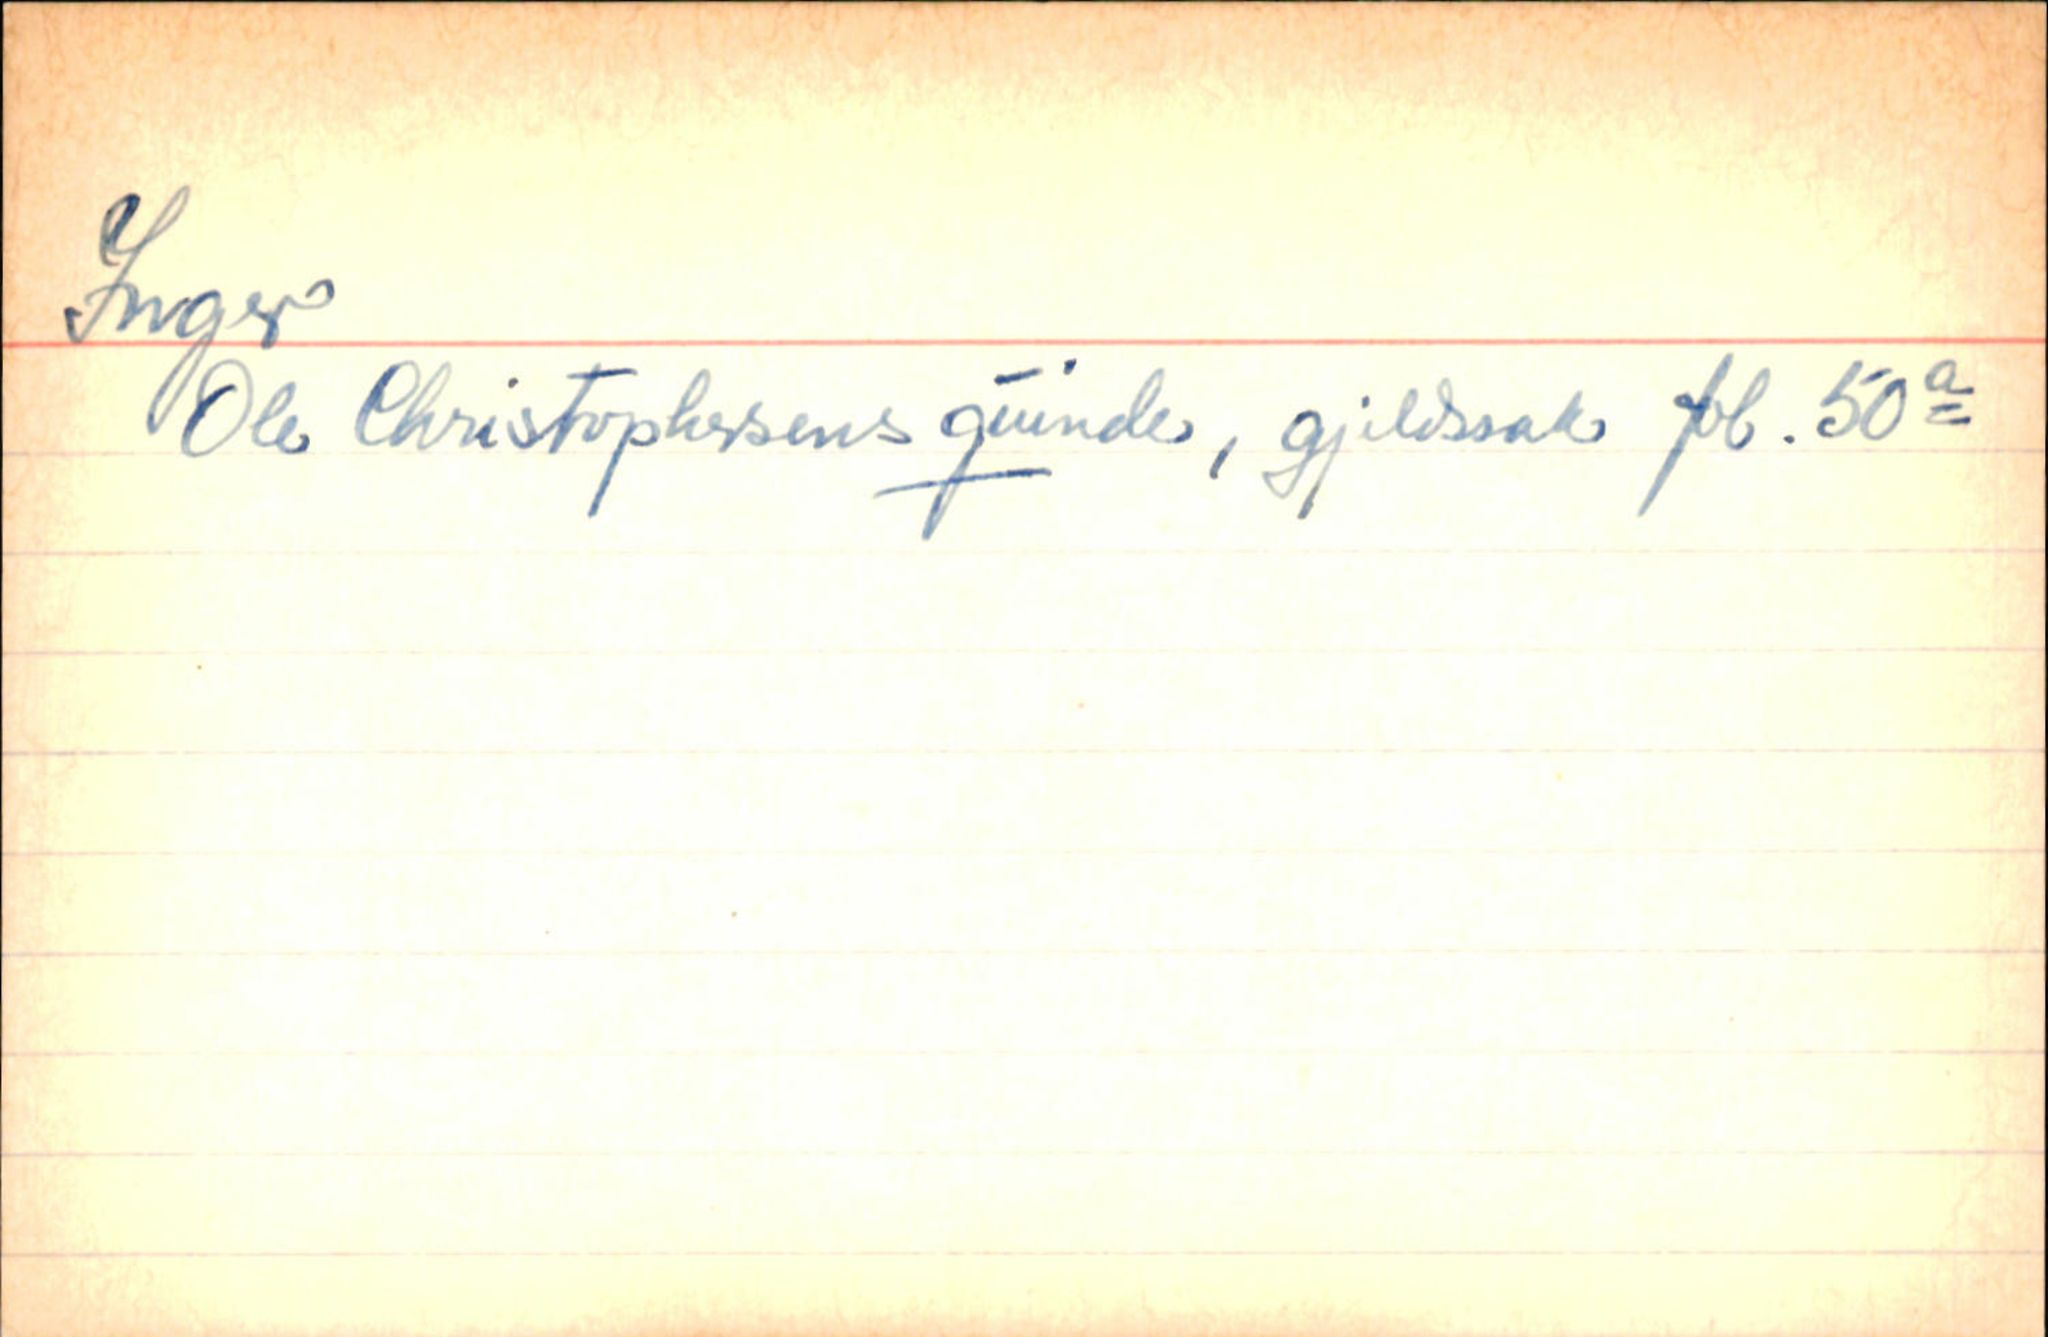 Inger
Ole Christophersens quinde, gjeldssak fol. 50a